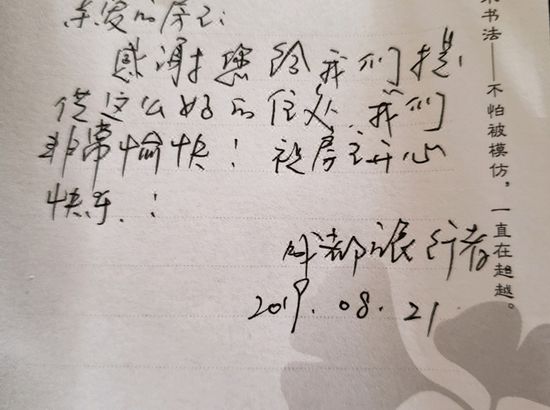 亲爱的房主:
感谢您给我们提
供这么好的住处,我们
非常愉快!祝房主开心
快乐.!
成都旅行者
2019.08.21
书法——不怕被模仿,一直在超越。